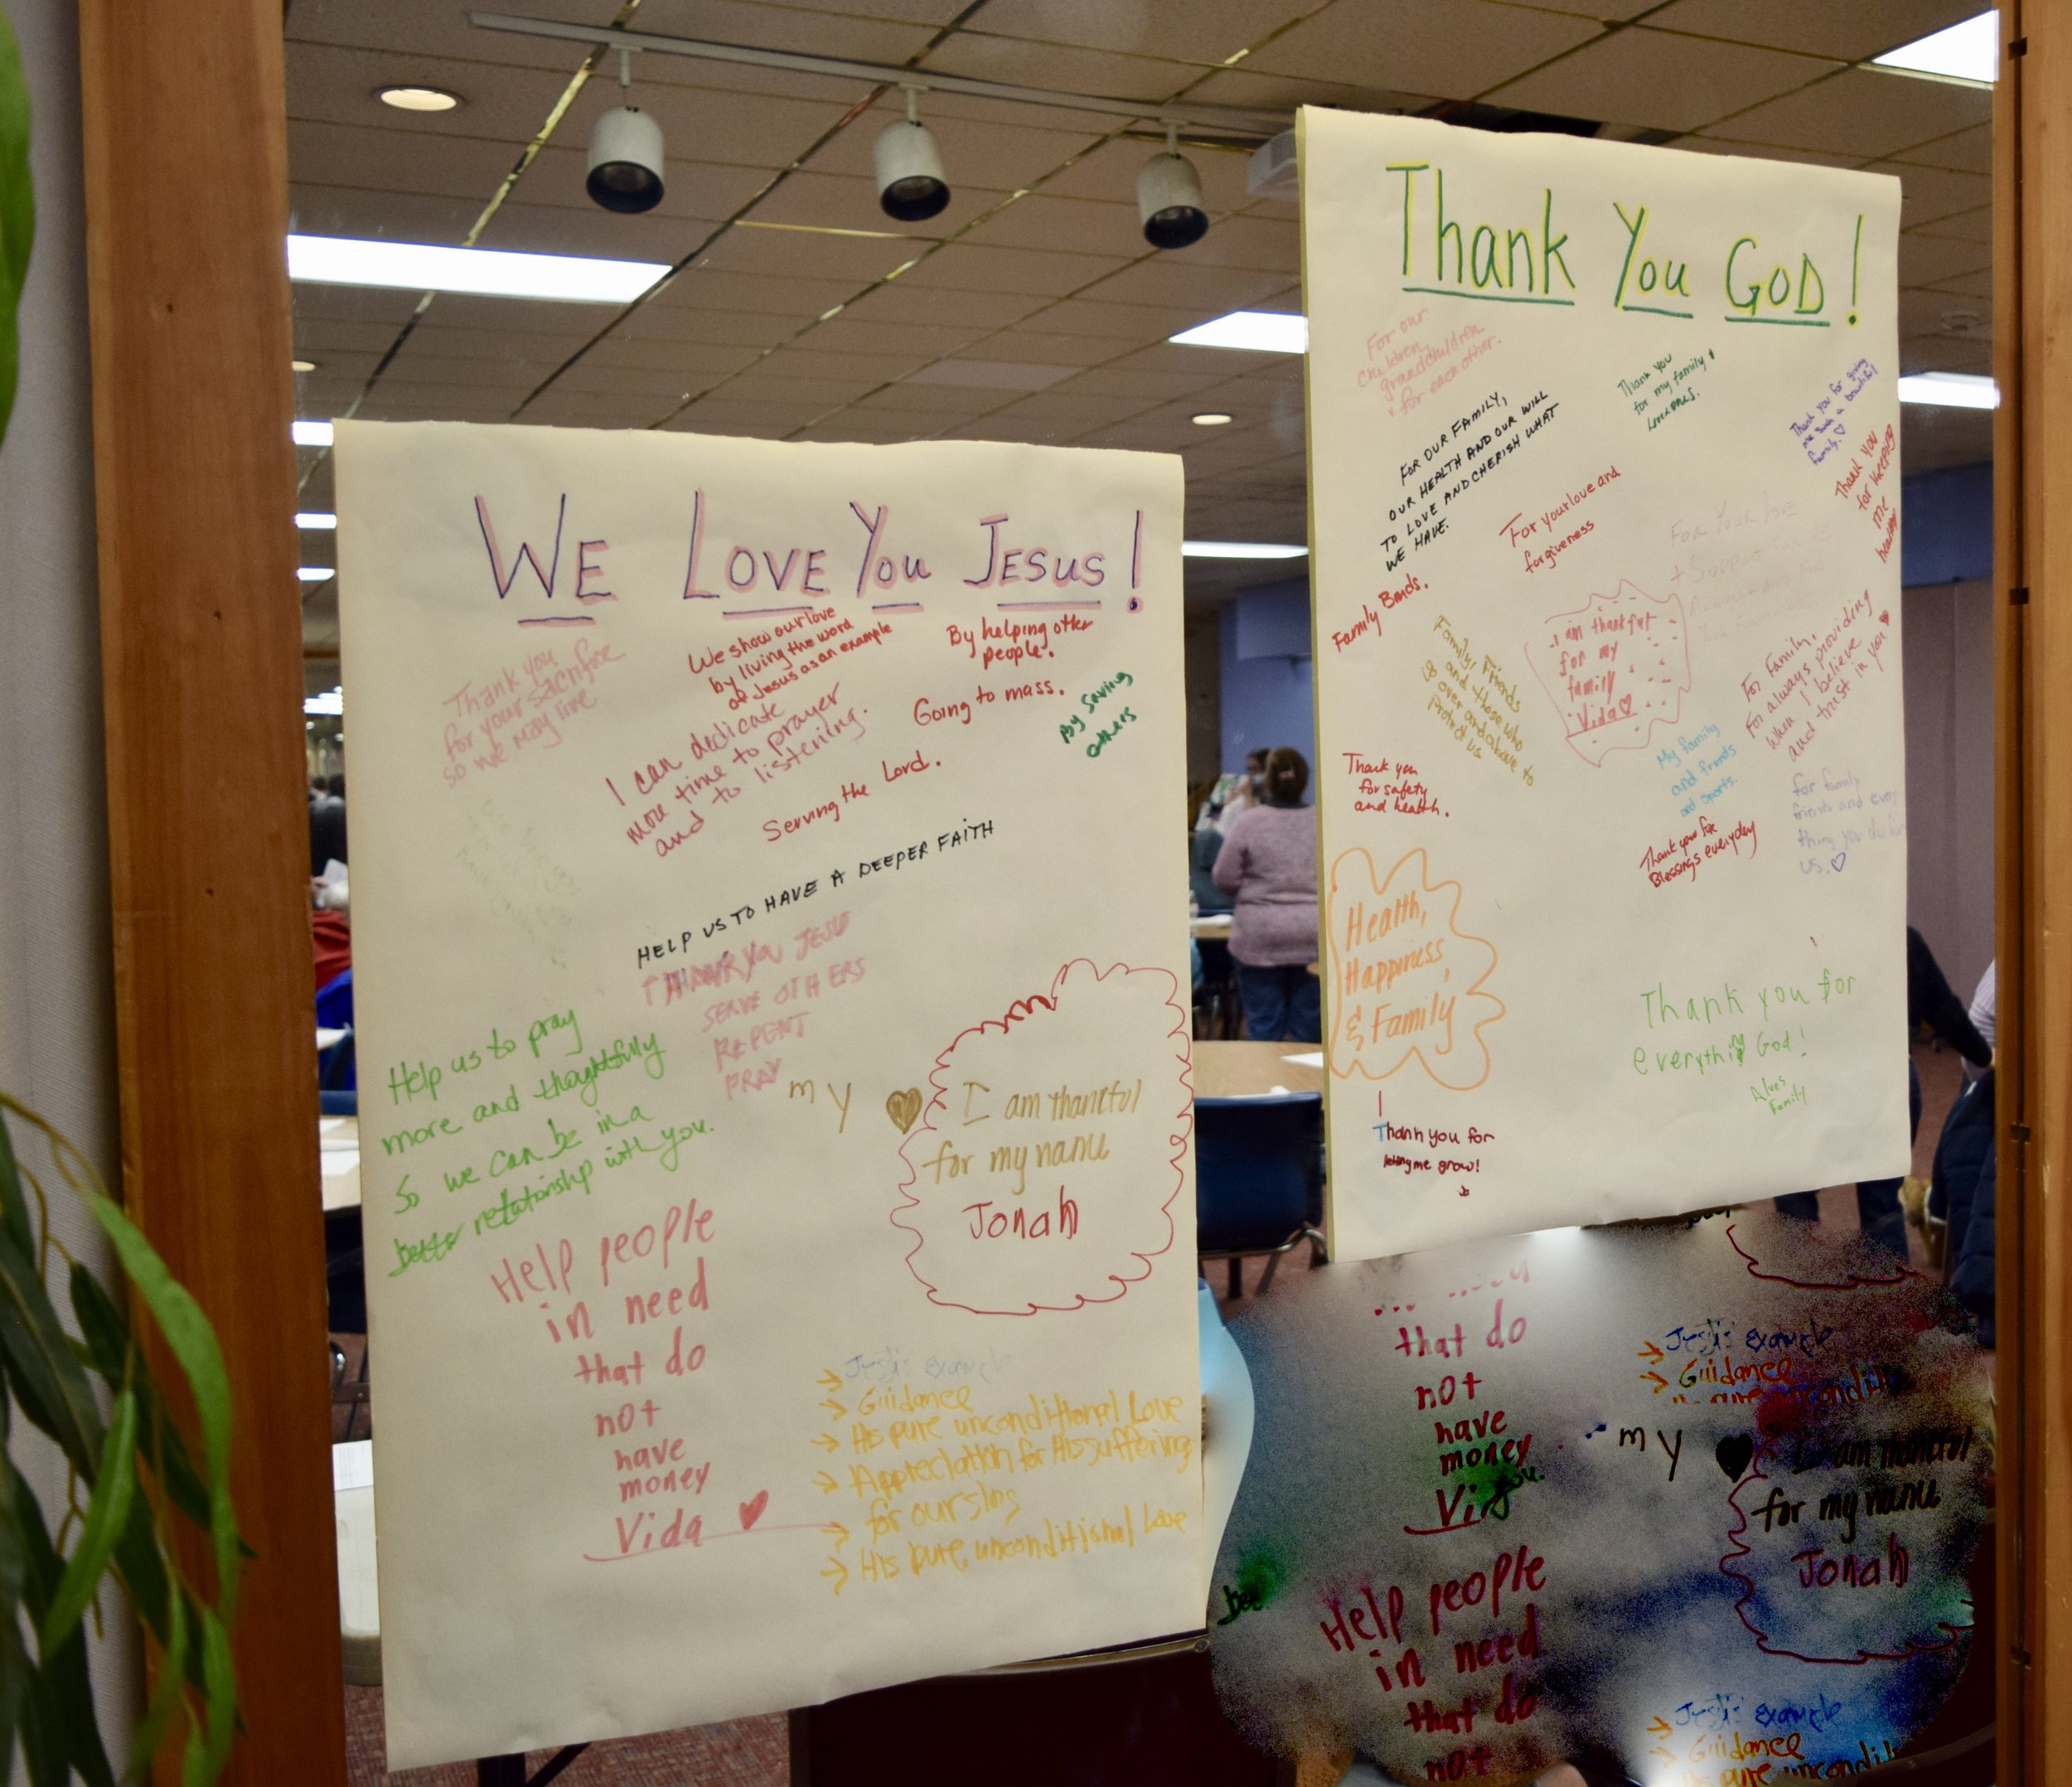 WE LOVE YOU JESUS!
Thank you
for your sacrifice
so we may live
We show our love
by living the word
of Jesus as an example
By helping other
people.
I can dedicate
more time to prayer
and to listening.
Going to mass.
By saving
others
Serving the Lord.
HELP US TO HAVE A DEEPER FAITH
THANK YOU JESUS
SERVE OTHERS
REPENT
PRAY
Help us to pray
more and thoughtfully
So we can be in a
better relationship with you.
my ♥ I am thankful
for my nanu
Jonah
Help people
in need
that do
not
have
money
Vida ♥
→ Jesus' example
→ Guidance
→ His pure unconditional Love
→ Appreciation for His suffering
→ for our sins
→ His pure, unconditional Love
Thank You GOD!
For our
children,
grandchildren
+ for each other.
FOR OUR FAMILY,
OUR HEALTH AND OUR WILL
TO LOVE AND CHERISH WHAT
WE HAVE.
Thank you
for my family +
loved ones.
Thank you for giving
me such a beautiful
family. ♡
Thank you
for keeping
me
healthy
For your love and
forgiveness
For Your Love
+ Support
Family Bonds.
Family, Friends
and those who
is over and above to
protect us
I am thankful
for my
family
Vida ♡
For Family,
For always providing
when I believe
and trust in you ♥
My family
and friends
and sports.
Thank you
for safety
and health.
Thank you for
Blessings everyday
for family
friends and every
thing you do for
us. ♡
Health,
Happiness,
& Family
Thank you for
everything God!
Alves
Family
Thank you for
letting me grow!
need
that do
not
have
money
you.
→ Jesus' example
→ Guidance
my ♥ I am thankful
for my nanu
Jonah
Help people
in need
that do
not
→ Jesus' example
→ Guidance
His pure